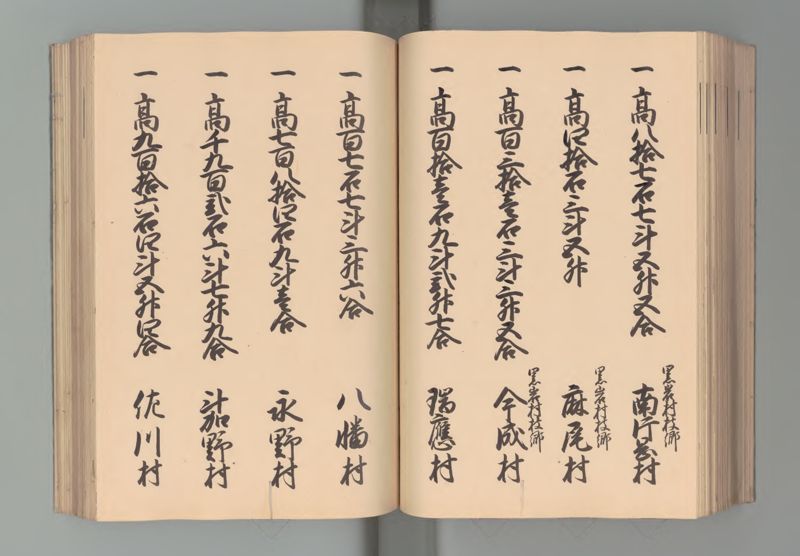 一 高八拾七石七斗五升五合 黒岩村枝郷 南片岡村
一 高四拾石三斗五升 黒岩村枝郷 麻尾村
一 高百三拾壱石三斗三升五合 黒岩村枝郷 今成村
一 高百拾壱石九斗弐升七合 瑞應村
一 高百七石七斗三升六合 八幡村
一 高七百八拾四石九斗壱合 永野村
一 高千九百弐石六斗七升九合 斗加野村
一 高九百拾六石四斗五升四合 佐川村